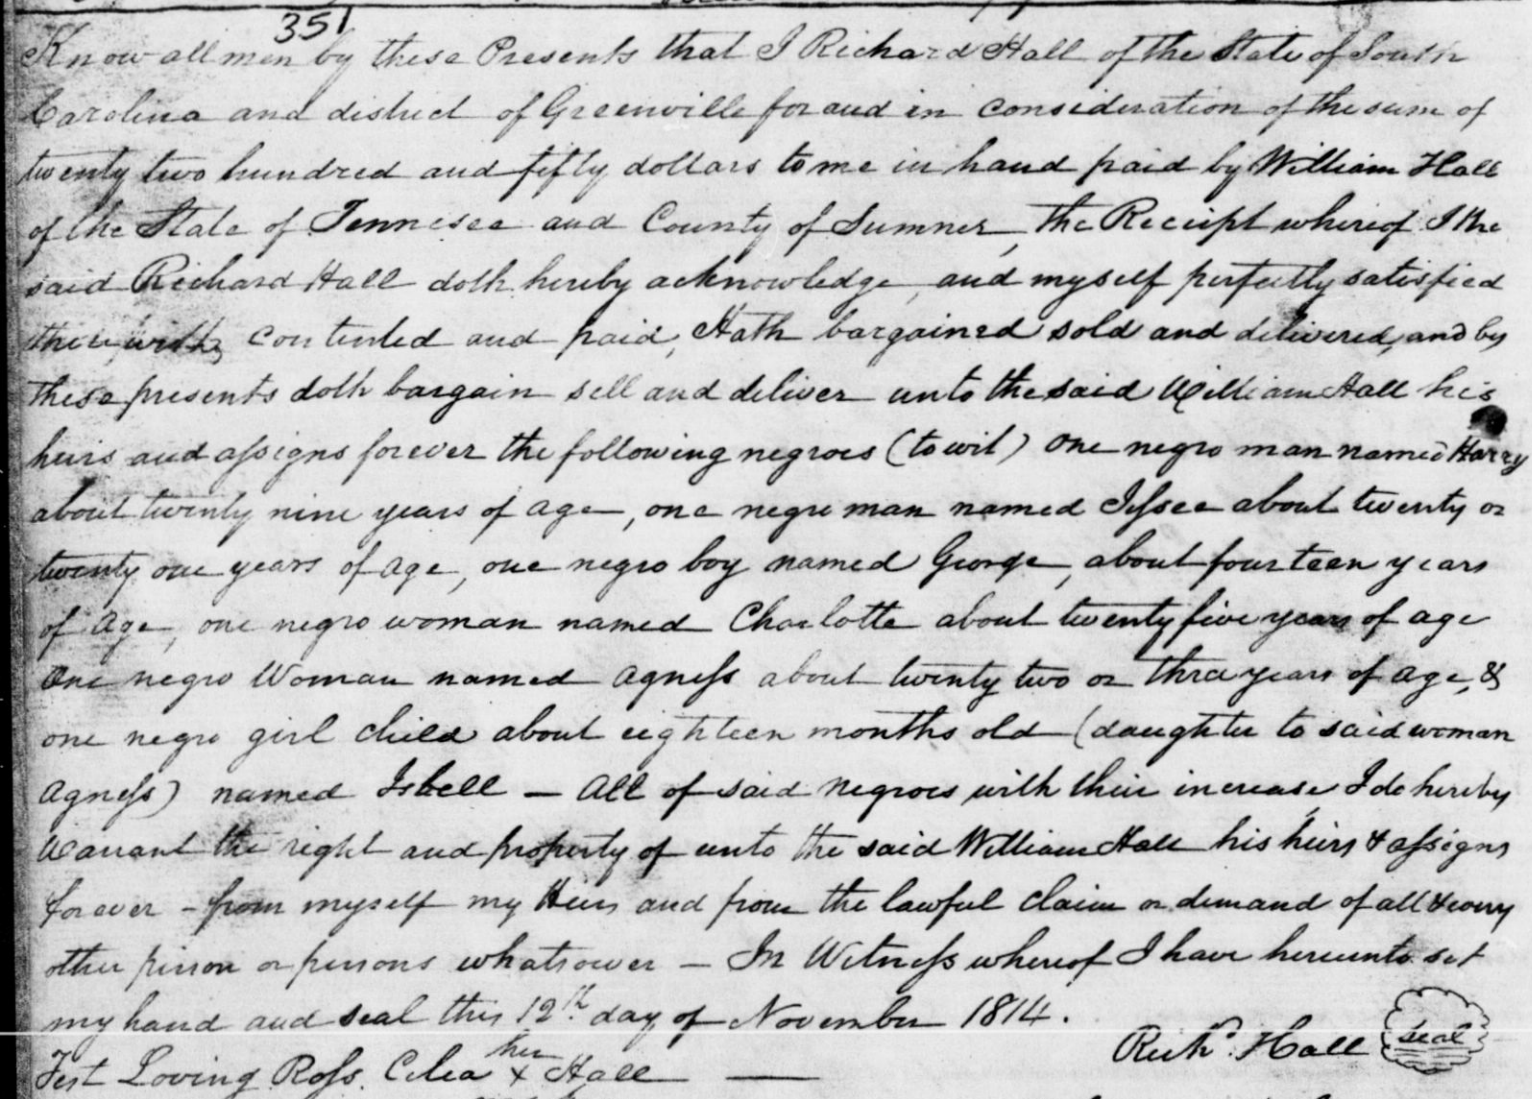 351
Know all men by these Presents that I Richard Hall of the State of South
Carolina and district of Greenville for and in consideration of the sum of
twenty two hundred and fifty dollars to me in hand paid by William Hall
of the State of Tennesee and County of Sumner, the Receipt whereof I the
said Richard Hall doth hereby acknowledge, and myself perfectly satisfied
therewith, contented and paid, Hath bargained sold and delivered, and by
these presents doth bargain sell and deliver unto the said William Hall his
heirs and assigns forever the following negroes (to wit) one negro man named Harry
about twenty nine years of age, one negro man named Jessee about twenty or
twenty one years of age, one negro boy named George, about fourteen years
of age, one negro woman named Charlotte about twenty five years of age
One negro Woman named Agness about twenty two or three years of age, &
one negro girl child about eighteen months old (daughter to said woman
Agness) named Isbell — All of said negroes with their increase, I do hereby
Warrant the right and property of unto the said William Hall his heirs & assigns
forever - from myself my Heirs and from the lawful claim or demand of all & every
other person or persons whatsoever — In Witness whereof I have hereunto set
my hand and seal this 12th day of November 1814.
Richd. Hall seal
Test Loving Ross. Celia her x Hall —